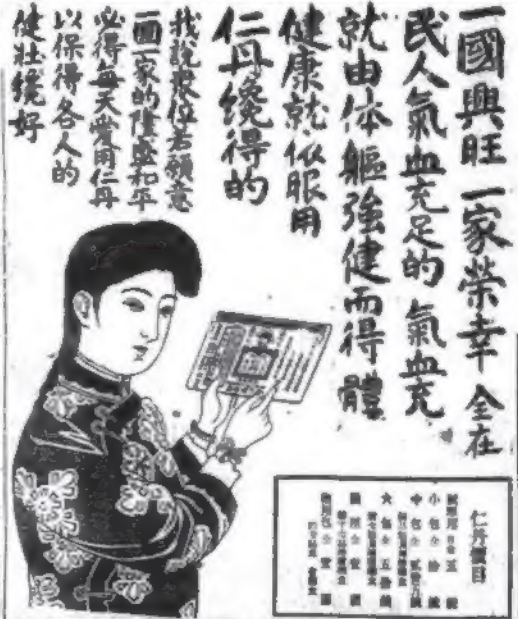 一國興旺 一家榮幸 全在
民人氣血充足的 氣血充
就由体軀強健而得 體
健康就依服用
仁丹纔得的
我說衆位若願意
一國一家的隆盛和平
必得每天愛用仁丹
以保得各人的
健壯纔好
仁丹價目
小包
中包
大包 五拾錢